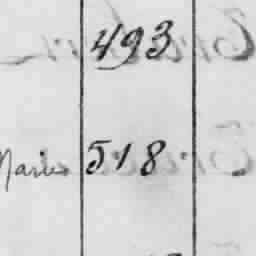 493
Marie 518